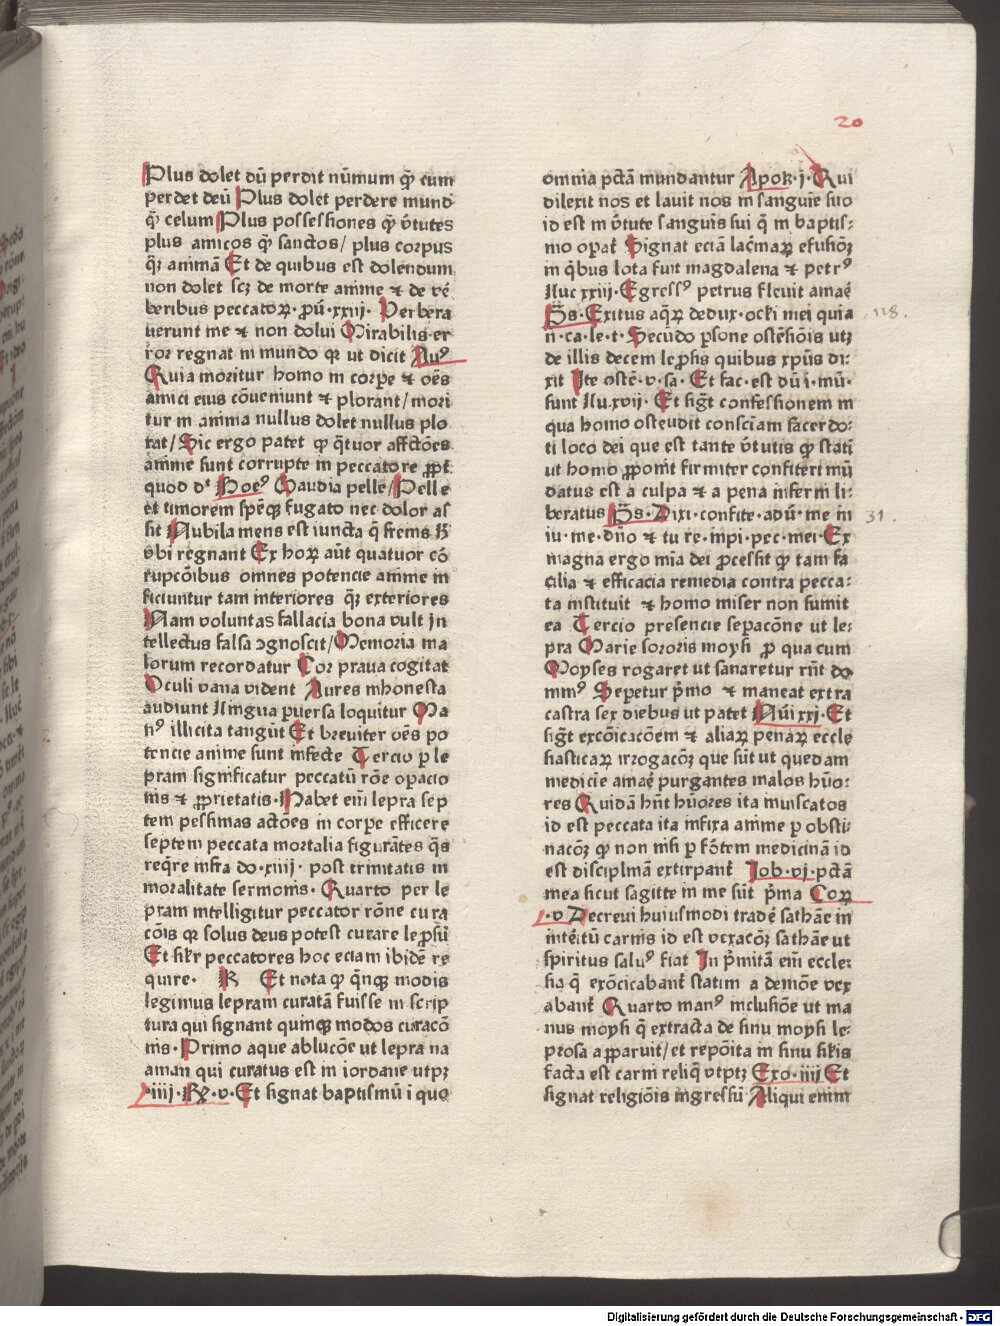 20
Plus dolet dū perdit nūmum ꝙ̄ cum
perdet deū Plus dolet perdere mund
ꝙ̄ celum Plus possessiones ꝙ̄ v̄tutes
plus amicos ꝙ̄ sanctos/ plus corpus
qȝ animā Et de quibus est dolendum
non dolet scȝ de morte anime ⁊ de vē
beribus peccatoꝝ· ꝓū·xxiij· Verbera
uerunt me ⁊ non dolui Mirabilis er
ror regnat in mundo qꝫ ut dicit Auꝰ
Quia moritur homo in corpe ⁊ oēs
amici eius cōueniunt ⁊ plorant/ mori
tur in anima nullus dolet nullus plo
rat/ Sic ergo patet ꝙ q̄tuor affctōes
anime sunt corrupte in peccatore ꝓpt̄
quod dꝰ Boeꝰ Gaudia pelle/ Pelle
et timorem spēqꝫ fugato nec dolor as
sit Nubila mens est iuncta q̄ frenis h̄
vbi regnant Ex hoꝝ aūt quatuor cō
rupcōibus omnes potencie anime in
ficiuntur tam interiores qȝ exteriores
Nam voluntas fallacia bona vult In
tellectus falsa ꝯgnoscit/ Memoria ma
lorum recordatur Cor praua cogitat
Oculi vana vident Aures inhonesta
audiunt Lingua puersa loquitur Ma
nꝰ illicita tangūt Et breuiter oēs po
tencie anime sunt infecte Tercio p le
pram significatur peccatū rōe opacio
nis ⁊ ꝓprietatis· Habet eīm lepra sep
tem pessimas actōes in corpe efficere
septem peccata mortalia figurātes q̄s
reqre infra do·xiiij· post trinitatis in
moralitate sermonis· Quarto per le
pram intelligitur peccator rōne cura
cōis qꝫ solus deus potest curare leprosū
Et silr peccatores hoc eciam ibidē re
quire· K Et nota ꝙ q̄nqꝫ modis
legimus lepram curatā fuisse in scrip
tura qui signant quinqꝫ modos curacō
nis· Primo aque ablucōe ut lepra na
aman qui curatus est in iordane utpȝ
·iiij·Rꝝ·v· Et signat baptismū i quo
omnia pctā mundantur Apok·j· Qui
dilexit nos et lauit nos in sanguīe suo
id est in v̄tute sanguis sui q̄ in baptis-
mo opat̄ Signat eciā lacrimaꝝ efusiōȝ
in q̄bus lota fuit magdalena ⁊ petrꝰ
Luc xxiij· Egressꝰ petrus fleuit amaē
p̄s· Exitus aqꝝ dedux·ocli mei quia
n·ca·le·t· Secūdo psone ostēsiōis utȝ
de illis decem leprosis quibus xpūs di-
xit Ite ostē·v·sa· Et fac·est dū i·mū·
sunt Lu·xvij· Et sigt̄ confessionem in
qua homo ostendit consciam sacerdo-
ti loco dei que est tante v̄tutis ꝙ stati
ut homo ꝓponit firmiter confiteri mū
datus est a culpa ⁊ a pena inferni li-
beratus p̄s· Dixi·confite·adū·me in
iu·me·dn̄o ⁊ tu re·inpi·pec·mei· Ex
magna ergo mīa dei ꝓcessit ꝙ tam fa
cilia ⁊ efficacia remedia contra pecca-
ta instituit ⁊ homo miser non sumit
ea Tercio presencie sepacōne ut le-
pra Marie sororis moysi p qua cum
Moyses rogaret ut sanaretur rn̄t do
minꝰ Sepetur p̄mo ⁊ maneat extra
castra sex diebus ut patet Nūi xxj· Et
sigt̄ excōicacōem ⁊ aliaꝝ penaꝝ eccle
siasticaꝝ irrogacōȝ que sūt ut quedam
medicīe amaē purgantes malos hūo-
res Quidā hn̄t hūores ita muiscatos
id est peccata ita infixa anime p obsti-
nacōȝ ꝙ non nisi p fōtem medicinā id
est disciplinā extirpant̄ Job·vj·pctā
mea sicut sagitte in me sūt p̄ma Coꝝ
·v Decreui huiusmodi tradē sathāe in
intētū carnis id est vexacōȝ sathāe ut
spiritus saluꝰ fiat In p̄mitā eīm eccle-
sia q̄ exōcicabant̄ statim a demōe vex
abant̄ Quarto manꝰ inclusiōe ut ma
nus moysi q̄ extracta de sinu moysi le-
prosa apparuit/ et repōita in sinu silis
facta est carni reliq̄ vtptȝ Exo·iiij Et
signat religiōis ingressū Aliqui enim
118.
31.
Digitalisierung gefördert durch die Deutsche Forschungsgemeinschaft - DFG